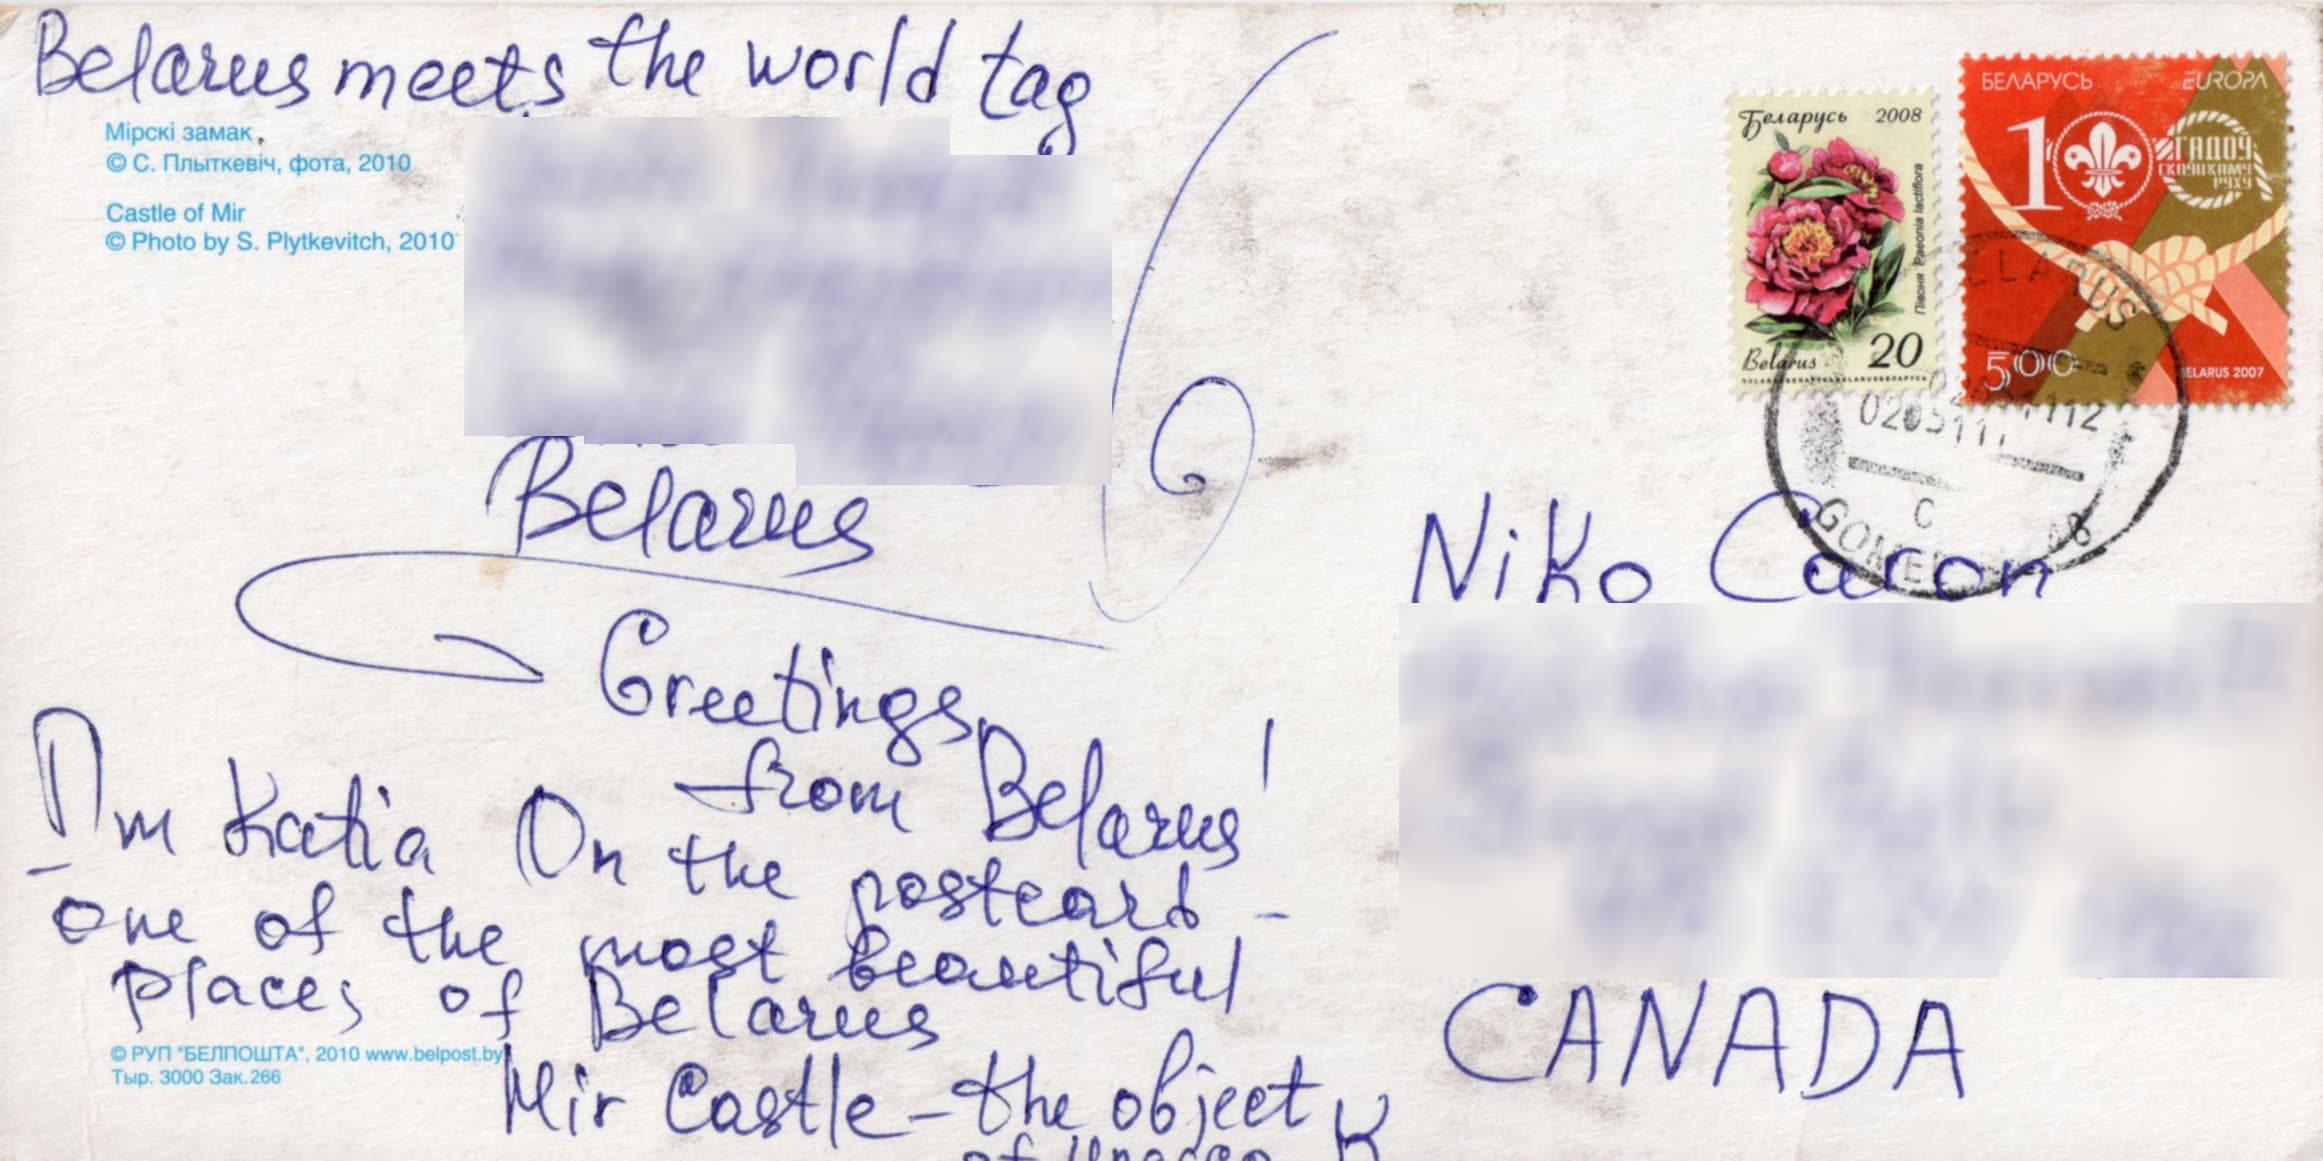 Belarus meets the world tag
Мірскі замак.
© С. Плыткевіч, фота, 2010
Castle of Mir
© Photo by S. Plytkevitch, 2010
Belarus
Greetings
from Belarus!
I'm Katia On the postcard -
one of the most beautiful
places of Belarus
Mir Castle - the object
of Unesco K
© РУП "БЕЛПОШТА", 2010 www.belpost.by
Тыр. 3000 Зак.266
Беларусь 2008
Півоня Paeonia lactiflora
Belarus 20
БЕЛАРУСЬ EUROPA
100 ГАДОЎ
СКАЎЦКАМУ
РУХУ
500
BELARUS 2007
BELARUS
C
GOMEL
Niko Caron
CANADA